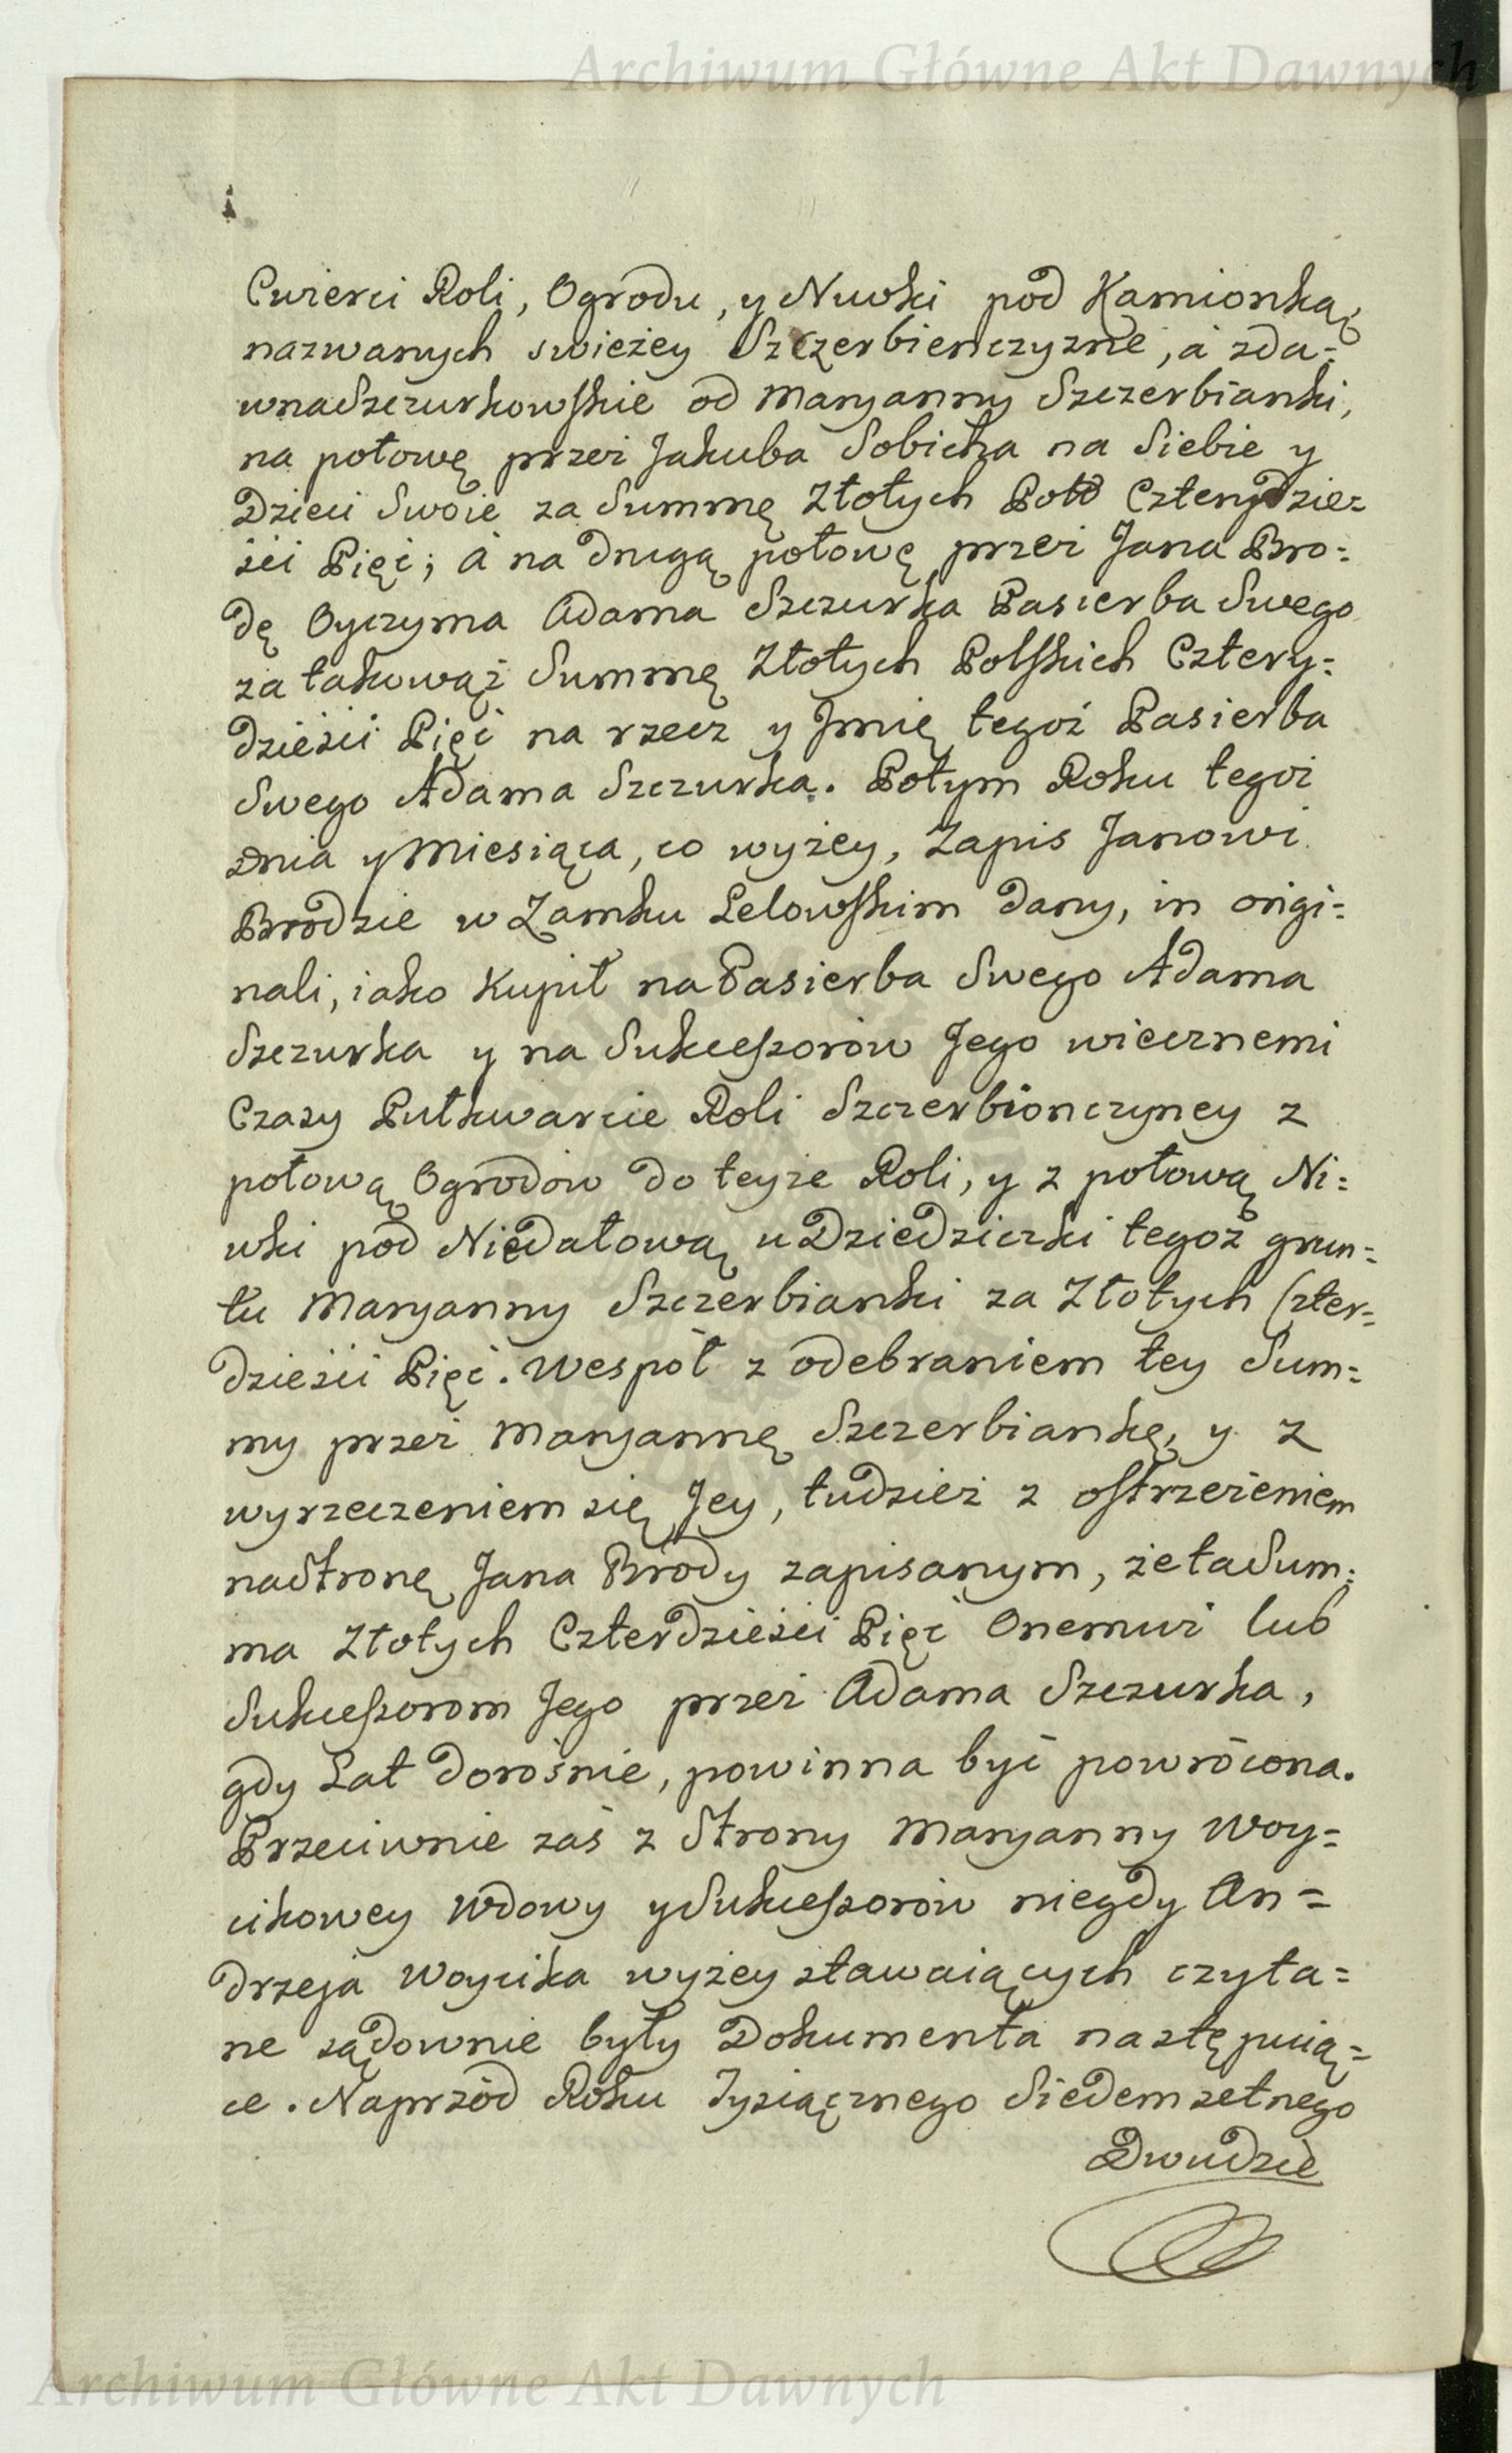 Archiwum Główne Akt Dawnych
Cwierci Roli, Ogrodu, y Niwki pod Kamionką,
nazwanych swieżey Szczerbienczyzne, á zda=
wna Szczurkowskie od Maryanny Szczerbianki,
na połowę przez Jakuba Sobicha na Siebie y
Dzieci Swoie za Summę Złotych Pols Czterydzie=
ści Pięć; á na drugą połowę przez Jana Bro=
dę Oyczyma Adama Szczurka Pasierba Swego
za takowąż Summę Złotych Polskich Cztery=
dzieści Pięć na rzecz y Jmię tegoż Pasierba
Swego Adama Szczurka. Potym Roku tegoż
dnia y Miesiąca, co wyżey, Zapis Janowi
Brodzie w Zamku Lelowskim dany, in origi=
nali, iako Kupił na Pasierba Swego Adama
Szczurka y na Sukcessorów Jego wiecznemi
Czasy Pułkwarcie Roli Szczerbionczyney z
połową Ogrodów do teyże Roli, y z połową Ni=
wki pod Niedałową u Dziedziczki tegoż grun=
tu Maryanny Szczerbianki za Złotych Czter=
dzieści Pięć. Wespół z odebraniem tey Sum=
my przez Maryannę Szczerbiankę, y z
wyrzeczeniem się Jey, tudzież z ostrzeżeniem
na Stronę Jana Brody zapisanym, że ta Sum=
ma Złotych Czterdzieści Pięć Onemuż lub
Sukcessorom Jego przez Adama Szczurka,
gdy Lat dorośnie, powinna być powrócona.
Przeciwnie zaś z Strony Maryanny Woy=
cikowey Wdowy y Sukcessorów niegdy An=
drzeja Woycika wyżey stawaiących czyta=
ne sądownie były Dokumenta następuią=
ce. Naprzód Roku Tysiącznego Siedemsetnego
Dwudzie
Archiwum Główne Akt Dawnych